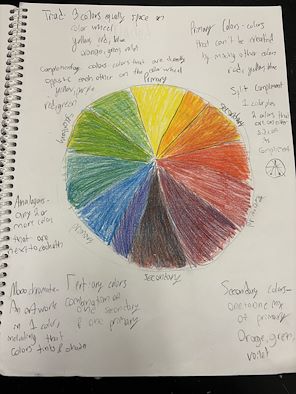 Triad: 3 colors equally space on
color wheel
yellow, red, blue
orange, green, violet
complementary colors - colors that are directly
opposite each other on the color wheel
yellow, purple
red, green
Primary Colors - colors
that can't be created
by mixing other colors
red, yellow, blue
Split Complement
1 color plus
2 colors that
are on either
side of
complement
Primary
secondary
secondary
Primary
Primary
secondary
Analogous -
any 2 or
more colors
that are
next to each oth
Monochromatic
An artwork
in 1 color,
including that
colors tints & shades
Tertiary colors
combination of
one secondary
& one primary
Secondary colors -
one to one mix
of primary
Orange, green,
violet